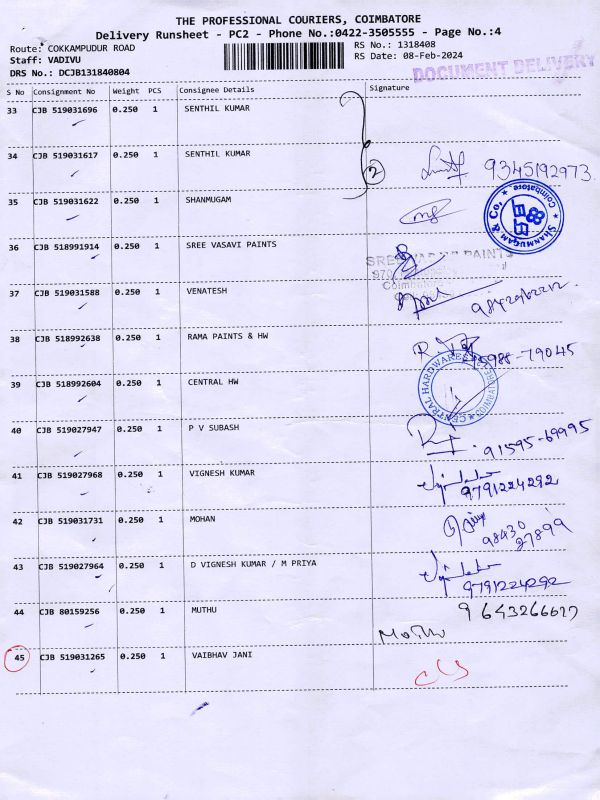 THE PROFESSIONAL COURIERS, COIMBATORE
Delivery Runsheet - PC2 - Phone No.:0422-3505555 - Page No.:4
Route: COKKAMPUDUR ROAD RS No.: 1318408
Staff: VADIVU RS Date: 08-Feb-2024
DRS No.: DCJB131840804 DOCUMENT DELIVERY
S No Consignment No Weight PCS Consignee Details Signature
33 CJB 519031696 0.250 1 SENTHIL KUMAR
34 CJB 519031617 0.250 1 SENTHIL KUMAR 2 9345192973
35 CJB 519031622 0.250 1 SHANMUGAM
SHANMUGAM & Co, Coimbatore
36 CJB 518991914 0.250 1 SREE VASAVI PAINTS
37 CJB 519031588 0.250 1 VENATESH
38 CJB 518992638 0.250 1 RAMA PAINTS & HW 95988-79045
39 CJB 518992604 0.250 1 CENTRAL HW
CENTRAL HARDWARES
40 CJB 519027947 0.250 1 P V SUBASH 91595-69995
41 CJB 519027968 0.250 1 VIGNESH KUMAR
9791224292
42 CJB 519031731 0.250 1 MOHAN
98430
27899
43 CJB 519027964 0.250 1 D VIGNESH KUMAR / M PRIYA
9791224292
44 CJB 80159256 0.250 1 MUTHU
Muthu
45 CJB 519031265 0.250 1 VAIBHAV JANI
c/s